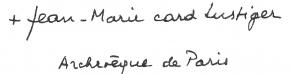 + Jean-Marie card Lustiger
Archevêque de Paris